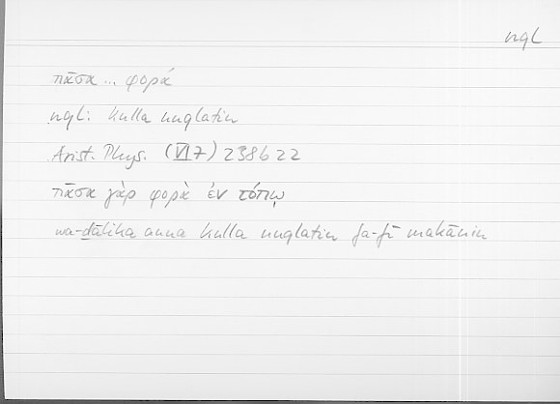 nql
πᾶσα ... φορά
nql: kulla nuqlatin
Arist. Phys. (VI 7) 238b22
πᾶσα γὰρ φορὰ ἐν τόπῳ
wa-ḏālika anna kulla nuqlatin fa-fī makānin